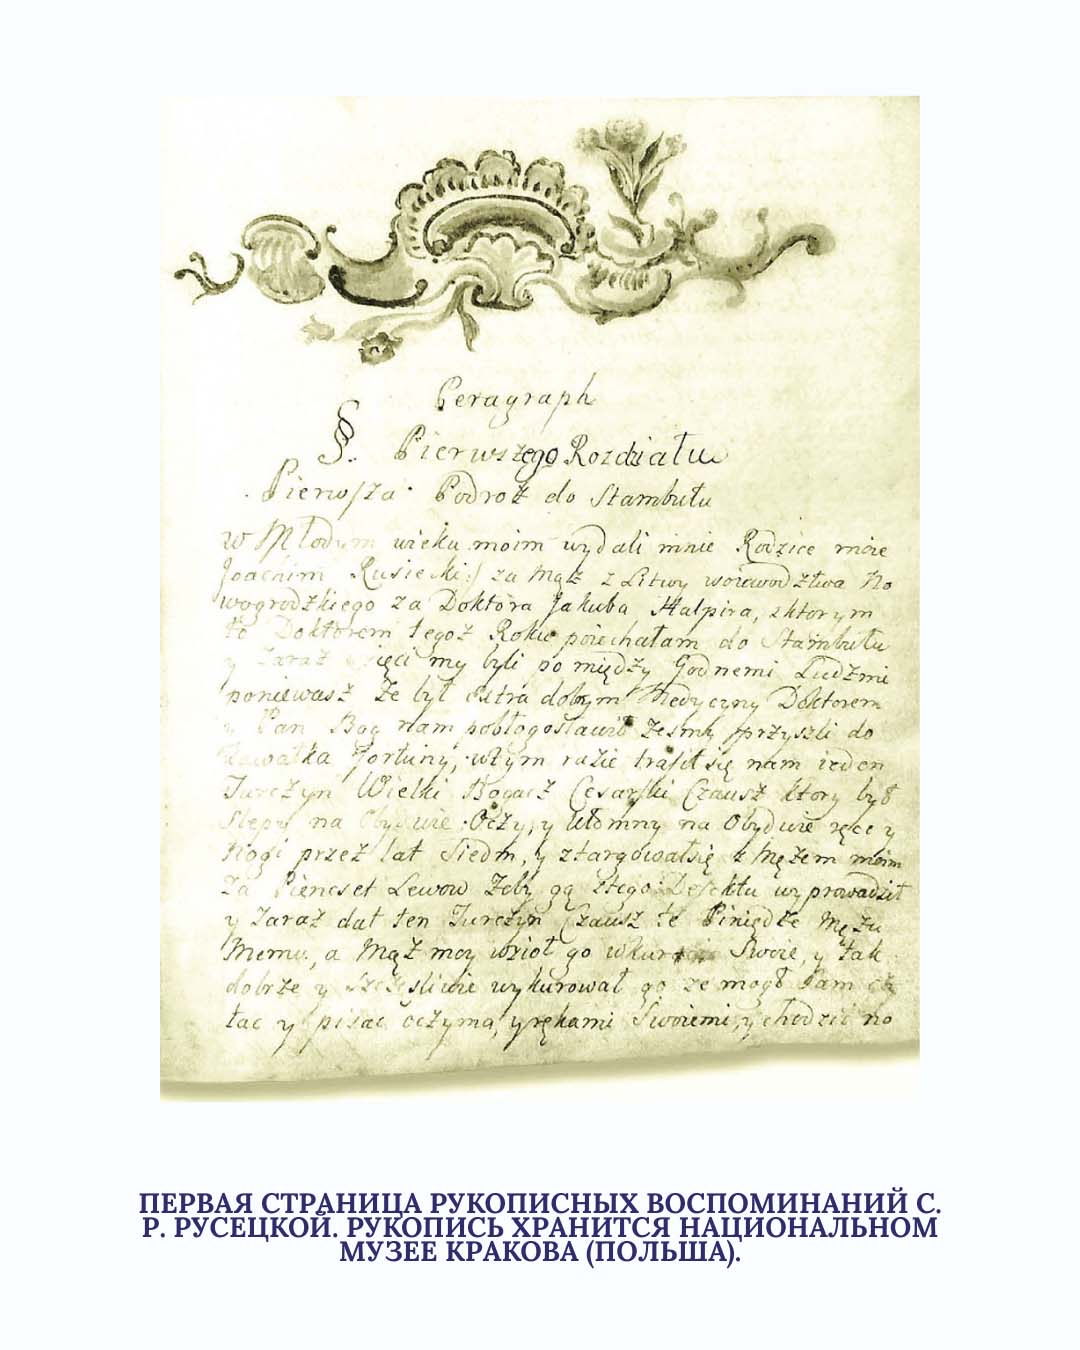 Peragraph
§. Pierwszego Rozdziału
Pierwsza Podroż do Stambułu
w Młodym wieku moim wydali mnie Rodzice moie
Joachim Rusiecki:/ za Mąż z Litwy woiewodztwa No
wogrodzkiego za Doktora Jakuba Halpira, z ktorym
to Doktorem tegoż Roku poiechałam do Stambułu
y Zaraż my byli po między Godnemi Ludźmi
poniewasz że był extra dobrym Medycyny Doktorem
y Pan Bog nam pobłogosławił żeśmy przyszli do
kawałka Fortuny, w tym razie trafił się nam ieden
Turczyn Wielki Bogacz Cesarski Czausz ktory był
Slepy na Obydwie Oczy, y Ułomny na Obydwie ręce y
Nogi przez lat Siedm, y ztargował się z Mężem moim
Za Piencset Lewow żeby go z tego Defektu wyprowadził
y Zaraz dał ten Turczyn Czausz te Piniędze Mężu
Memu, a Mąż moy wzioł go w Swoie, y tak
dobrze y szczęśliwie wykurował go że mogł Sam czy
tac y pisac oczyma, y rękami Swoiemi, y chodzic no
ПЕРВАЯ СТРАНИЦА РУКОПИСНЫХ ВОСПОМИНАНИЙ С.
Р. РУСЕЦКОЙ. РУКОПИСЬ ХРАНИТСЯ НАЦИОНАЛЬНОМ
МУЗЕЕ КРАКОВА (ПОЛЬША).